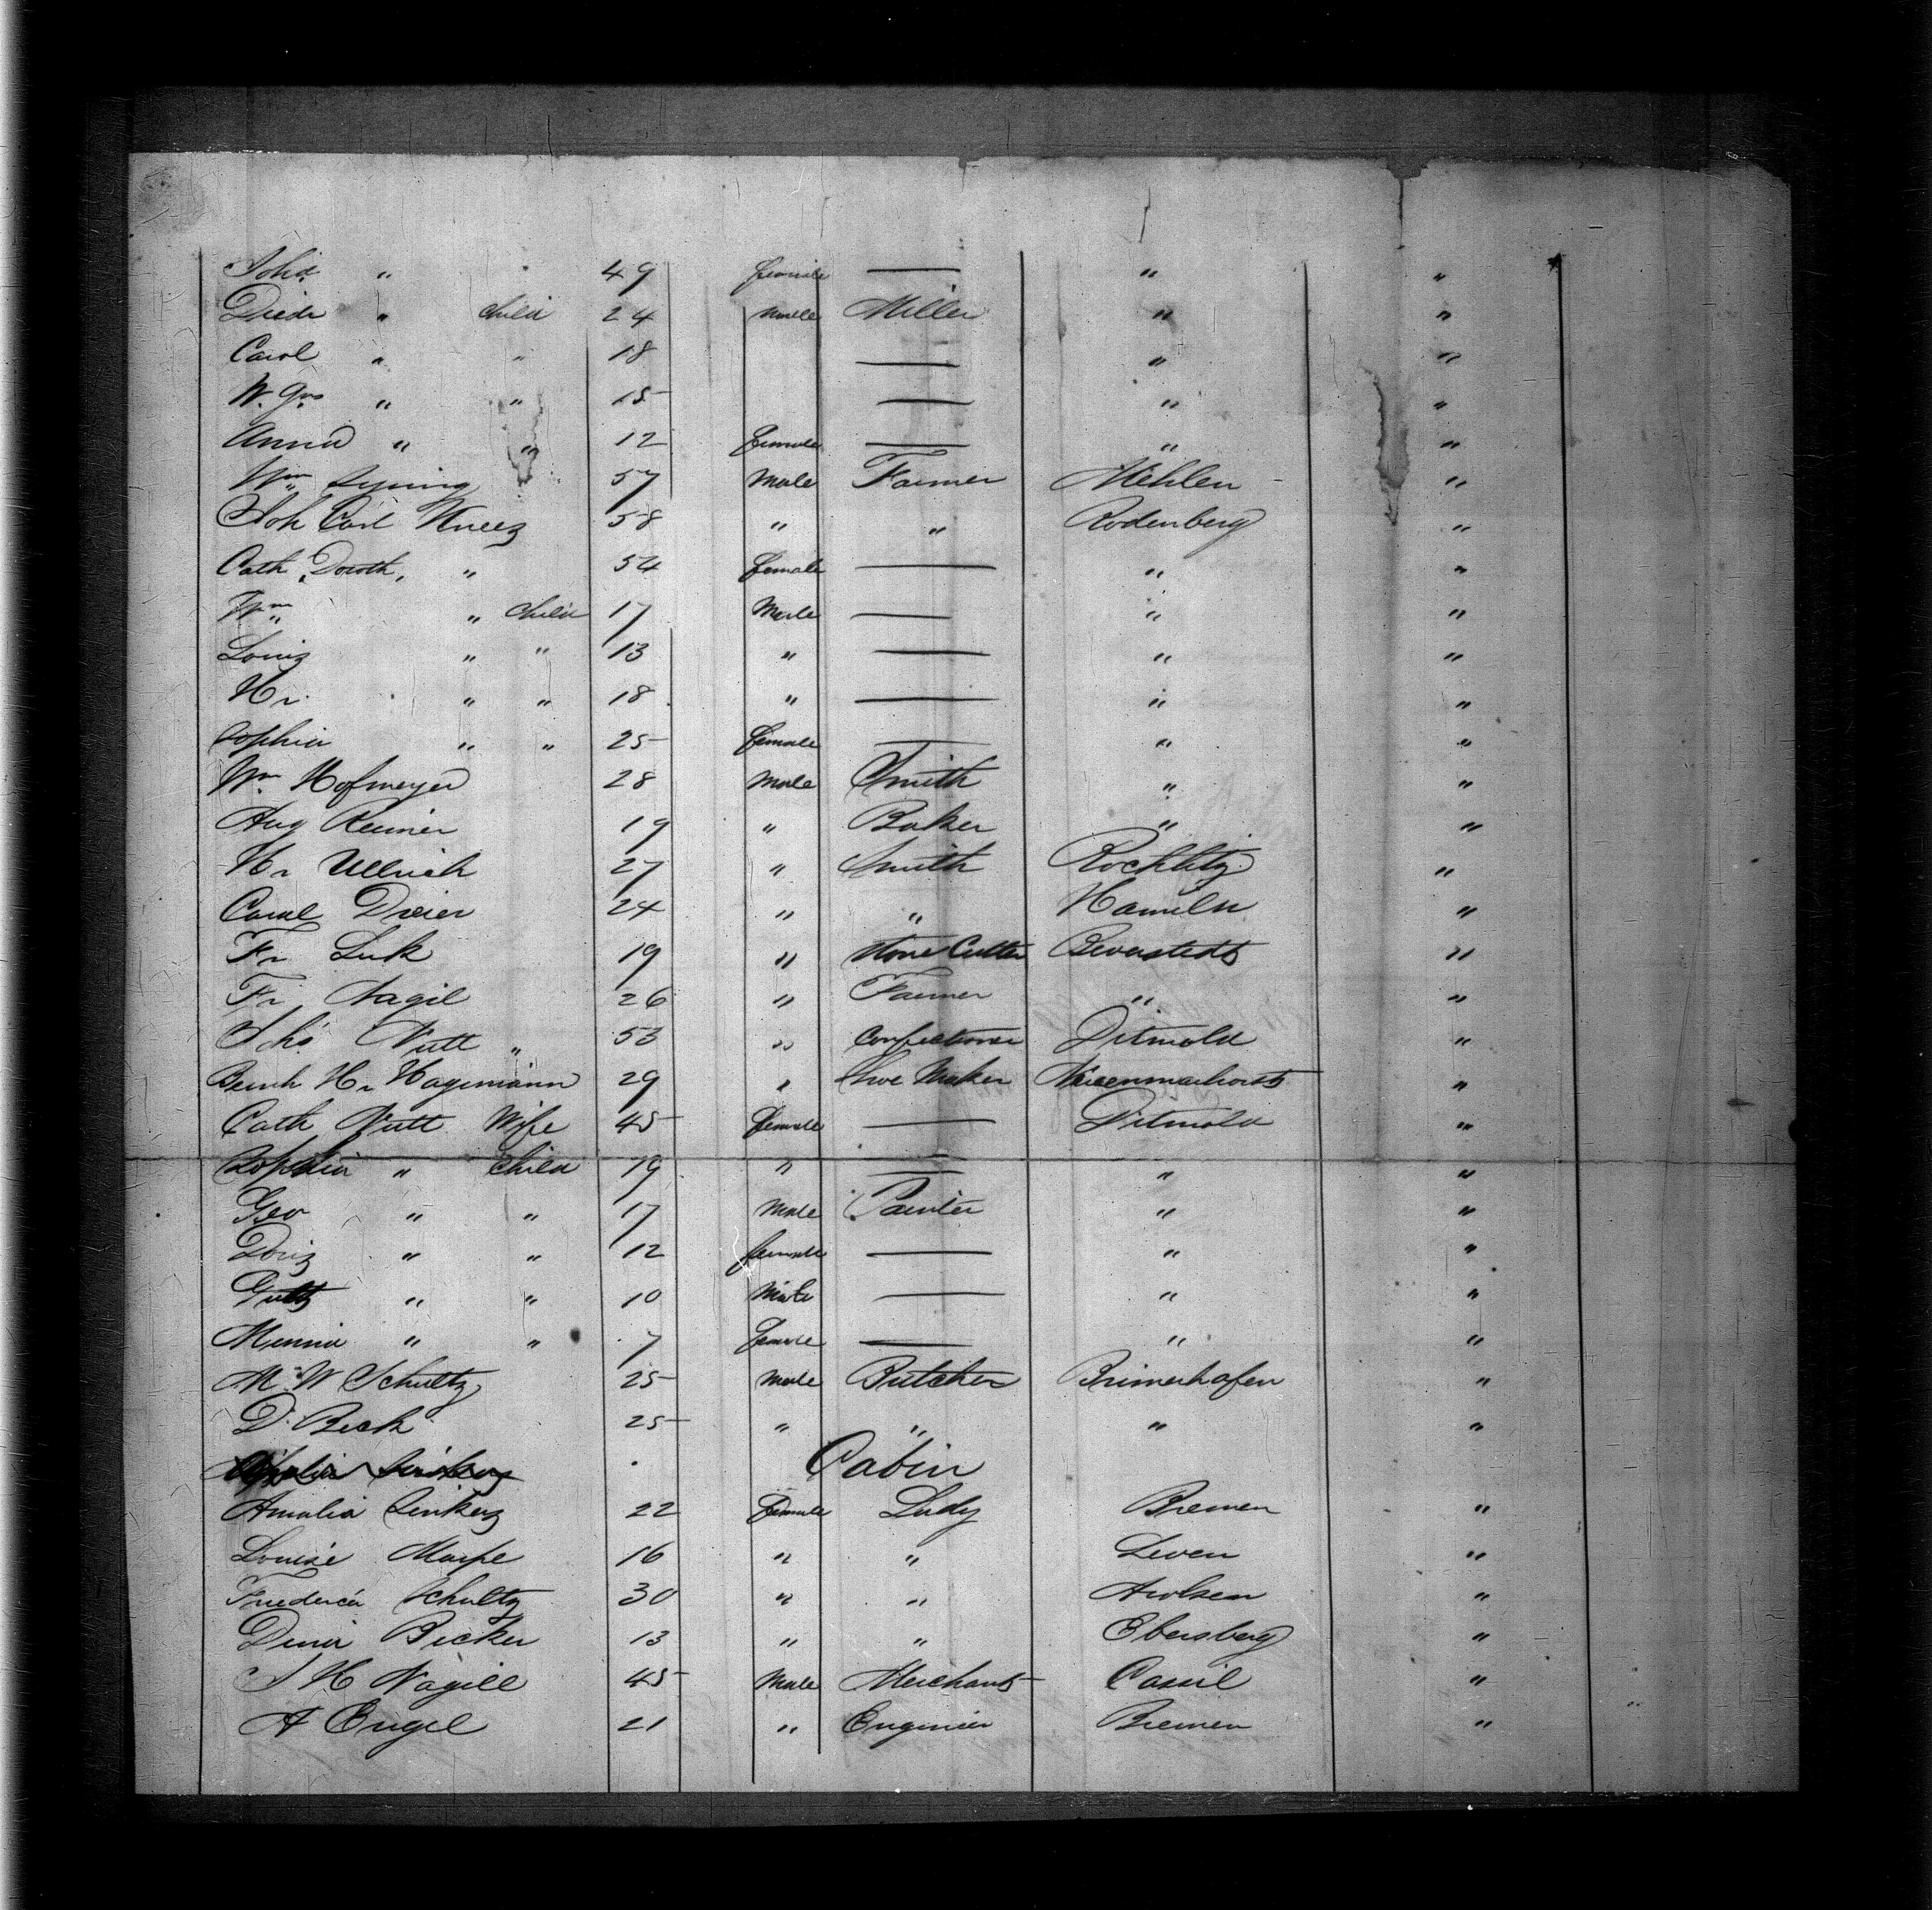 Joh.a " 49 female — " "
Died.r " Child 24 Male Miller " "
Carl " " 18 — " "
W. Gus " " 15 — " "
Anna " " 12 female — " "
Wm 57 Male Farmer Mehlen "
Joh Carl Kneez 58 " " Rodenberg "
Cath. Doroth. " 54 female — " "
Wm " Child 17 Male — " "
Louis " " 13 " — " "
Hr. " " 18 " — " "
Sophia " " 25 female — " "
Wm Hofmeyer 28 Male Smith " "
Aug Reimer 19 " Baker " "
Hr Ullrich 27 " Smith Rochlitz "
Carl Dreier 24 " " Hameln "
Fr Luk 19 " Stone Cutter Beverstedt "
Fr Nagil 26 " Farmer " "
Joh.s Nutt " 53 " Confectioner Ditmold "
Bernh Hr Hagemann 29 " Shoe Maker "
Cath Nutt Wife 45 female — Ditmold "
Sophia " Child 19 " — " "
Geo " " 17 Male Painter " "
Doriz " " 12 female — " "
" " 10 Male — " "
Minna " " 7 Female — " "
M. W Schultz 25 Male Butcher Brimerhafen "
D. Beck 25 " " " "
Cabin
Amalia Linkerz 22 Female Lady Bremen "
Louise Marpe 16 " " Leven "
Friederica Schultz 30 " " Arolsen "
Dina Becker 13 " " Ebersberg "
J H Nagill 45 Male Merchant Cassil "
A Engel 21 " Enginier Bremen "